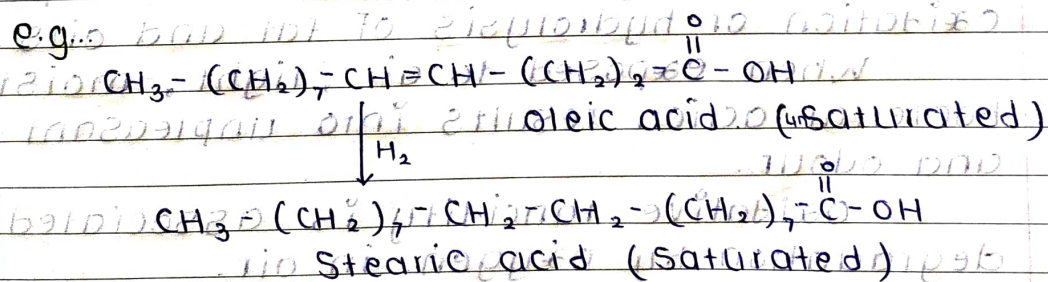 e.g.
O
||
CH₃ - (CH₂)₇ - CH = CH - (CH₂)₇ - C - OH
oleic acid (unsaturated)
H₂
O
||
CH₃ - (CH₂)₇ - CH₂ - CH₂ - (CH₂)₇ - C - OH
Stearic acid (saturated)